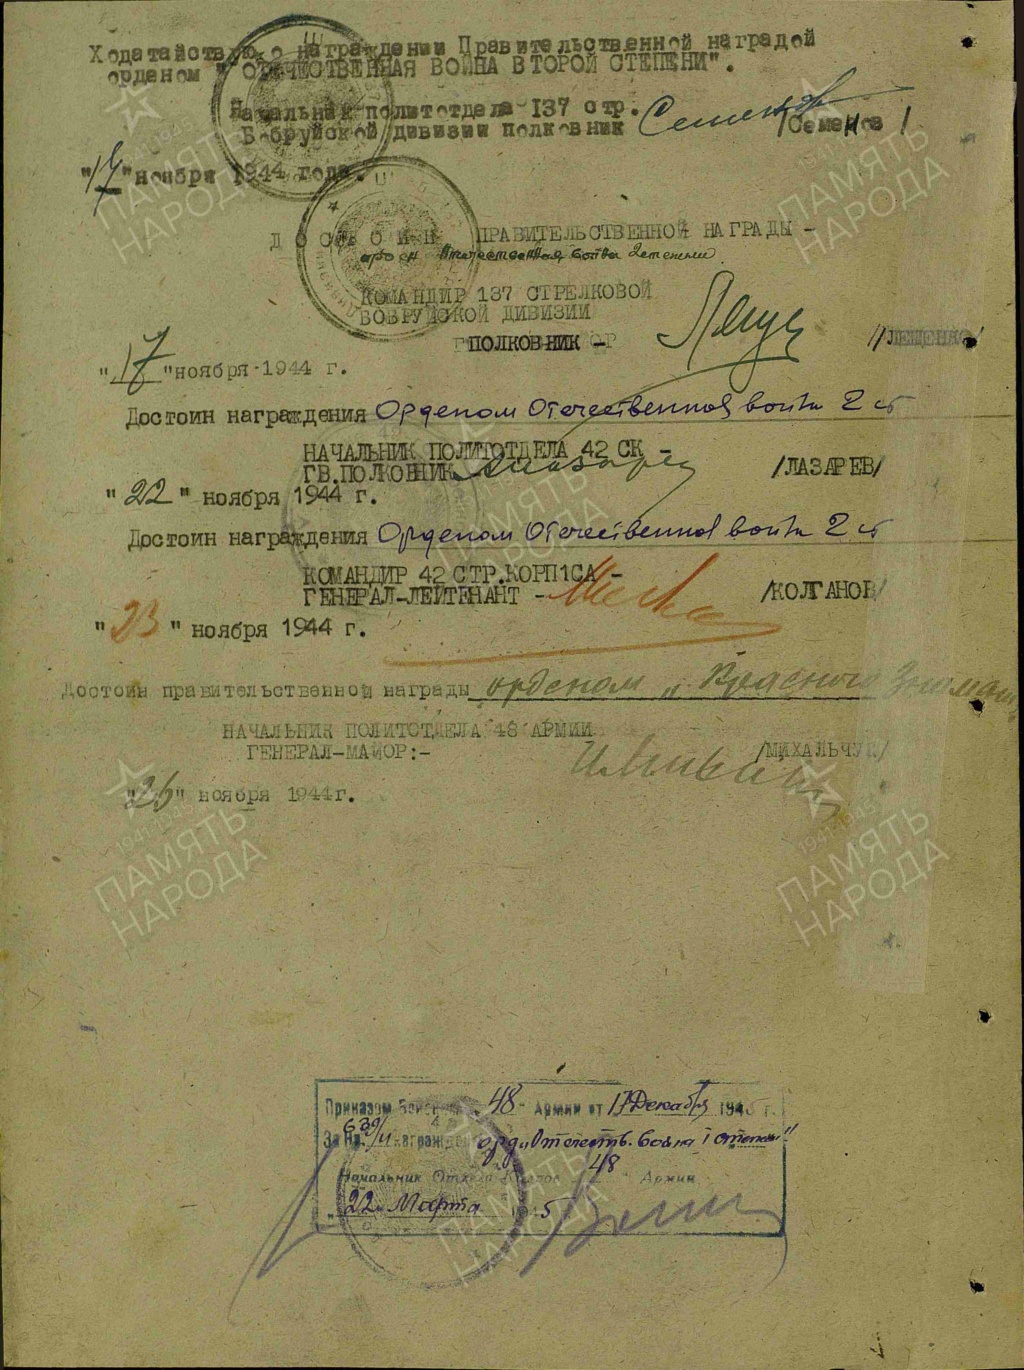 Ходатайствую о награждении Правительственной наградой
орденом " ОТЕЧЕСТВЕННАЯ ВОЙНА ВТОРОЙ СТЕПЕНИ".
Начальник политотдела 137 стр.
Бобруйской дивизии полковник Семенов /Семенов/
"17" ноября 1944 года.
ДОСТОИН ПРАВИТЕЛЬСТВЕННОЙ НАГРАДЫ -
орден Отечественная война 2 степени
КОМАНДИР 137 СТРЕЛКОВОЙ
БОБРУЙСКОЙ ДИВИЗИИ
ПОЛКОВНИК - /ЛЕЩЕНКО/
"17" ноября 1944 г.
Достоин награждения Орденом Отечественной войны 2 ст
НАЧАЛЬНИК ПОЛИТОТДЕЛА 42 СК -
ГВ.ПОЛКОВНИК /ЛАЗАРЕВ/
"22" ноября 1944 г.
Достоин награждения Орденом Отечественной войны 2 ст
КОМАНДИР 42 СТР.КОРП1СА -
ГЕНЕРАЛ-ЛЕЙТЕНАНТ - /КОЛГАНОВ/
"23" ноября 1944 г.
Достоин правительственной награды орденом "Красного Знамени"
НАЧАЛЬНИК ПОЛИТОТДЕЛА 48 АРМИИ
ГЕНЕРАЛ-МАЙОР:- /МИХАЛЬЧУК/
"26" ноября 1944г.
Приказом 48 Армии от 17 Декабря 194 г.
За № 639/н награжден орд. Отечеств. война I степени"
Начальник Отдела Кадров 48 Армии
"22" Марта 5
ПАМЯТЬ
НАРОДА
1941-1945